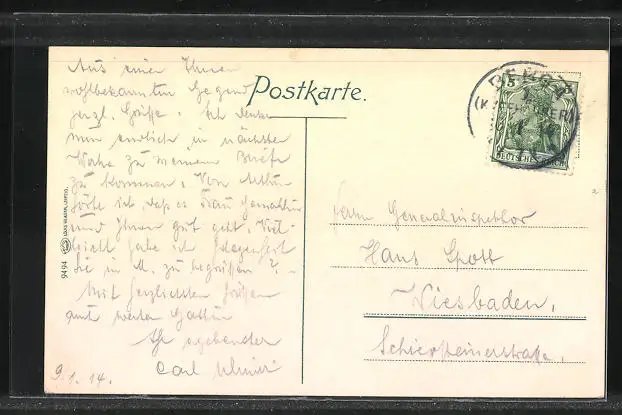 Postkarte.
Aus einer Ihnen
wohlbekannten Gegend
herzl. Grüße. Ich denke
nun endlich in nächster
Woche zu meinem Briefe
zu kommen. Von
hörte ich, daß es Frau Gemahlin
und Ihnen gut geht. Viel-
leicht habe ich Gelegenheit
Sie in M. zu begrüßen?
Mit herzlichsten Grüßen
auch werter Gattin
Ihr ergebenster
Carl
9.1.14.
Herrn Generalinspektor
Hans Spott
Wiesbaden,
Schiersteinerstraße.
5
DEUTSCHES REICH
9494